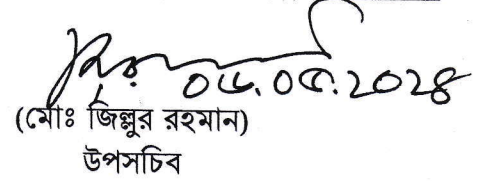 ০৬.০৫.২০২৪
(মোঃ জিল্লুর রহমান)
উপসচিব